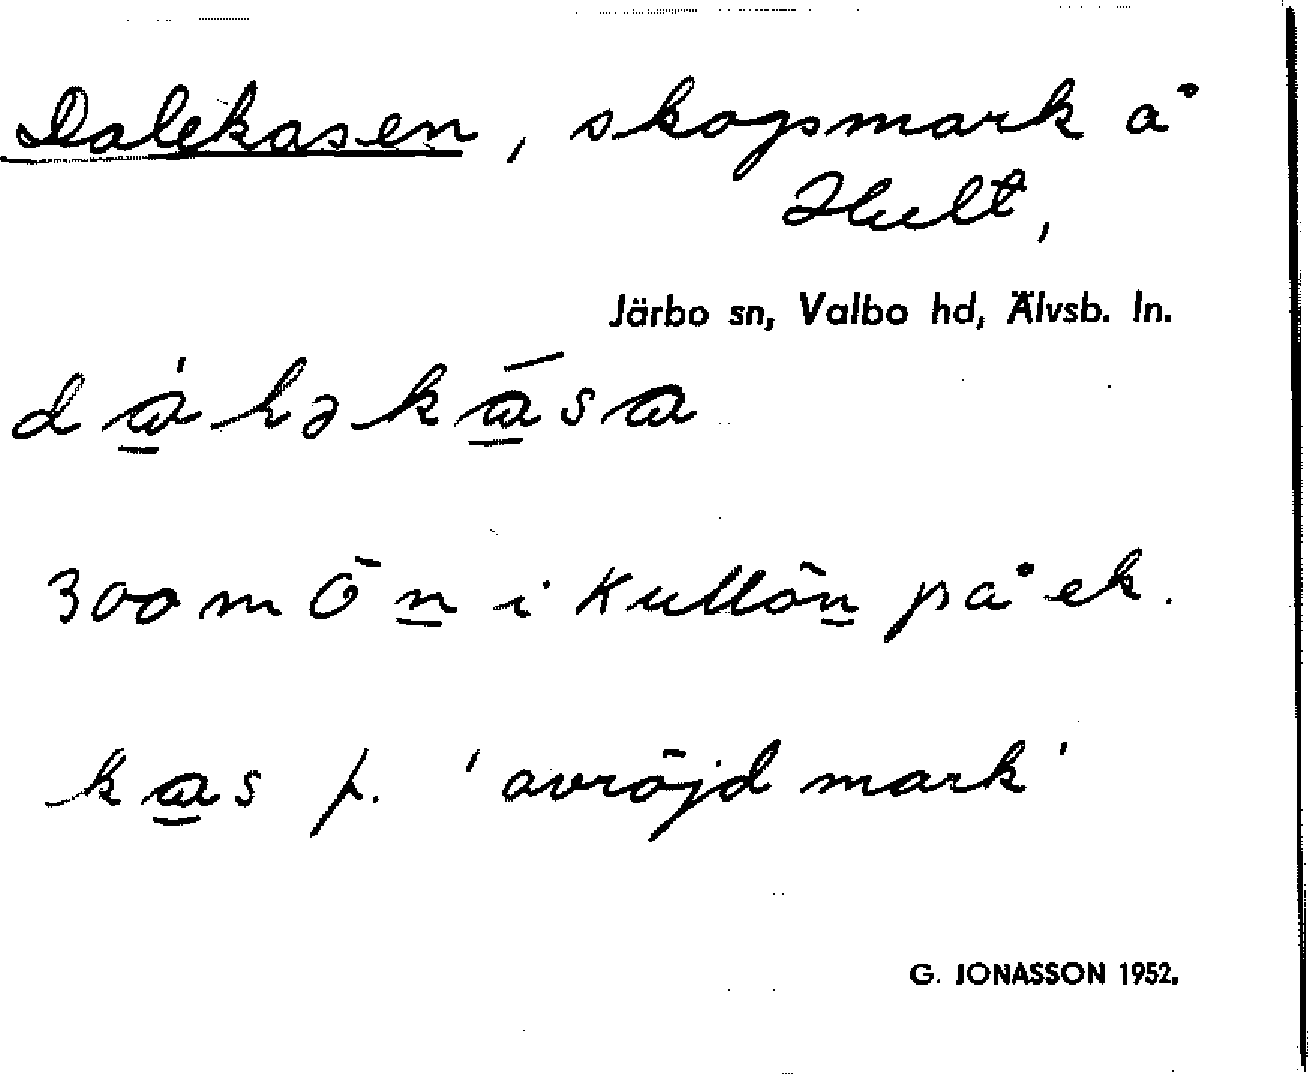 Dalekasen, skogsmark å
Hult,
Järbo sn, Valbo hd, Älvsb. ln.
300 m Ö n i Kullön på ek.
kas f. 'avröjd mark'
G. JONASSON 1952.